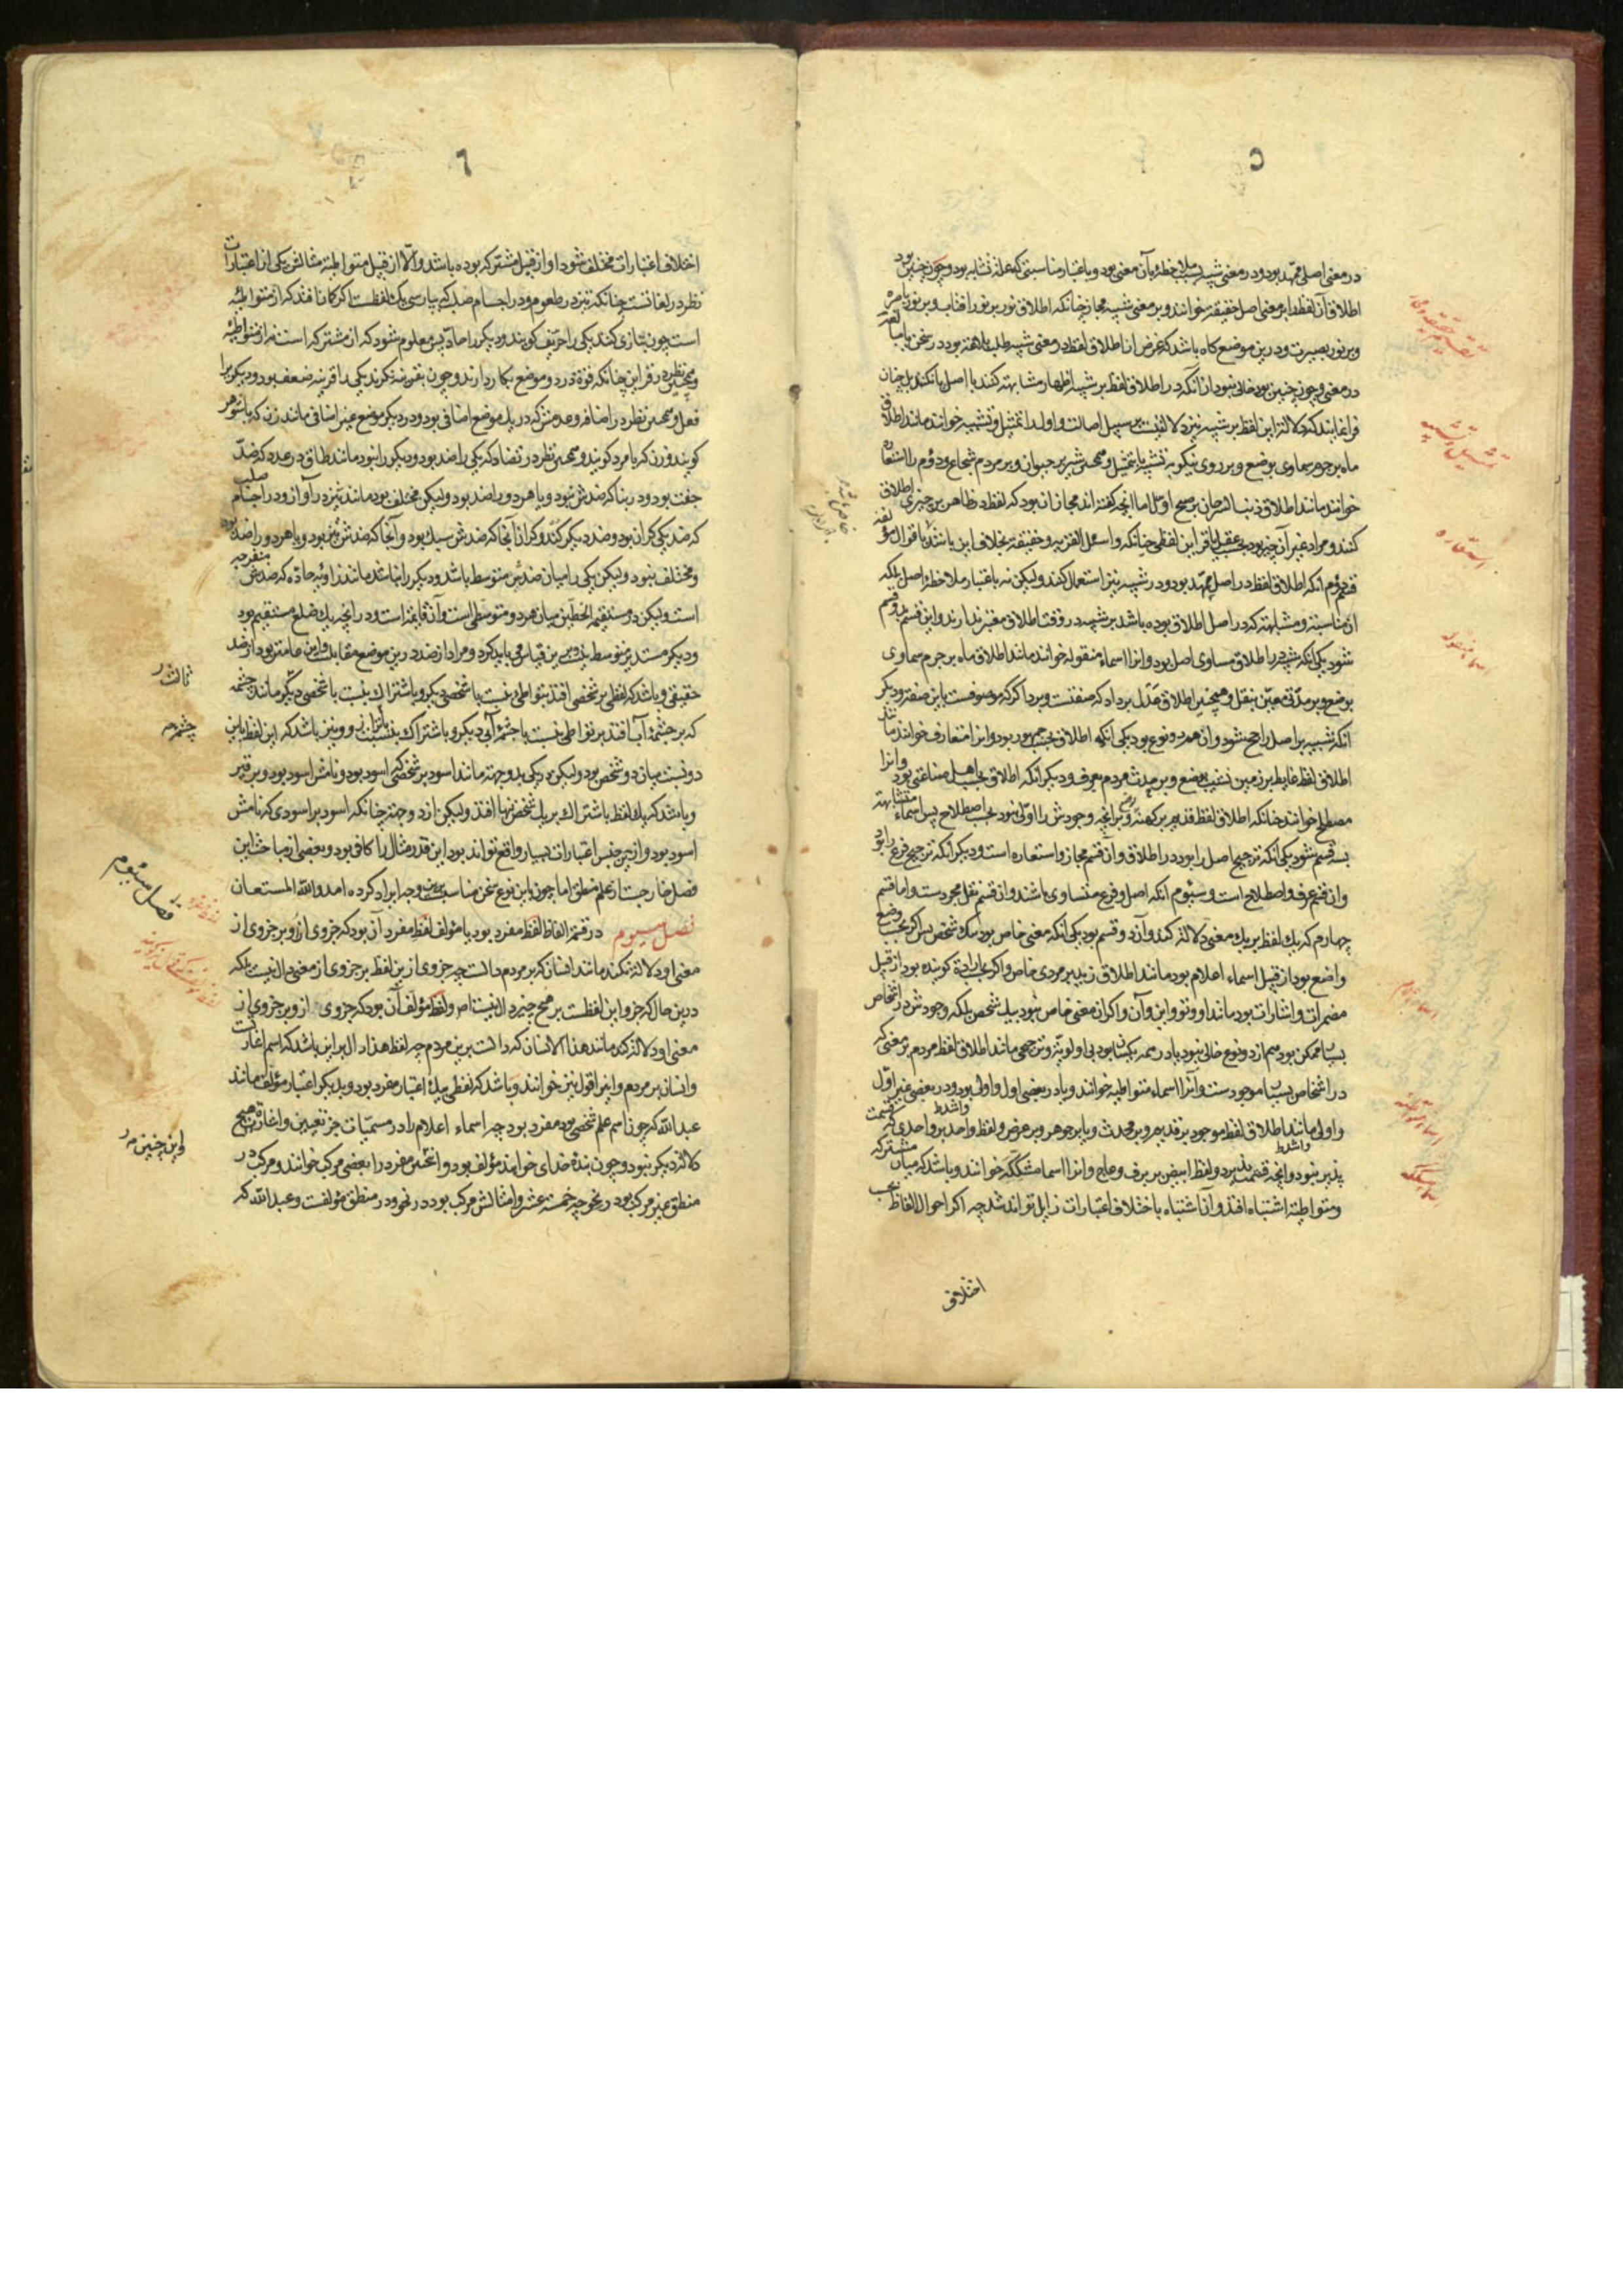 ۵
در معنی اصلی ممهد بود و در معنی شبیه بسبب ملاحظهٔ آن معنی بود و باعتبار مناسبتی که علة تشابه بود و چون چنین بود
اطلاق آن لفظ را بر معنی اصل حقیقة خوانند و بر معنی شبیه مجاز چنانکه اطلاق نور بر نور آفتاب و بر نور باصره
و بر نور بصیرت و درین موضع گاه باشد که غرض از اطلاق لفظ در معنی شبیه طلب مبالغة بود در سخن یا
در معنی و چون چنین بود خالی نبود از آنکه در اطلاق لفظ بر شبیه اظهار مشابهة کنند با اصل یا نکنند بل چنان
فرا نمایند که دلالة این لفظ بر شبیه نیز دلالتیست بر سبیل اصالت و اول را تمثیل و تشبیه خوانند مانند اطلاق
ماه بر جرم سماوی بوضع و بر روی نیکو به تشبیه یا تمثیل و همچنین شیر بر حیوان و بر مردم شجاع و دوم را استعاره
خوانند مانند اطلاق ذنب السرحان بر صبح اول اما آنچه گفته اند مجاز آن بود که لفظ در ظاهر بر چیزی اطلاق
کنند و مراد غیر آن چیز بود بحسب عقل یا قراین لفظی چنانکه و اسئل القریه و حقیقة بخلاف این باشد
قسم دوم آنکه اطلاق لفظ در اصل ممهد بود و در شبیه نیز استعمال کنند ولیکن نه باعتبار ملاحظهٔ اصل بلکه
آن مناسبة و مشابهة که در اصل اطلاق بوده باشد بر شبیه در وقت اطلاق معتبر ندارند و این قسم بدو قسم
شود یکی آنکه شبیه در اطلاق مساوی اصل بود و آنرا اسماء منقوله خوانند مانند اطلاق ماه بر جرم سماوی
بوضع و بر مدتی معین بنقل و همچنین اطلاق عدل بر داد که صفتست و بر دادگر که موصوفست باین صفة و دیگر
آنکه شبیه بر اصل راجح شود و آن هم دو نوع بود یکی آنکه اطلاق بحسب جمهور بود و آنرا متعارف خوانند مانند
اطلاق لفظ غایط بر زمین نشیب بوضع و بر حدث مردم بعرف و دیگر آنکه اطلاق بحسب اهل صناعتی بود و آنرا
مصطلح خوانند چنانکه اطلاق لفظ قدیم بر کهنه و بر آنچه وجودش را اولی نبود بحسب اصطلاح پس اسماء متشابهة
بسه قسم شود یکی آنکه ترجیح اصل را بود در اطلاق و آن قسم مجاز و استعاره است و دیگر آنکه ترجیح فرع را بود
و آن قسم عرف و اصطلاح است و سیوم آنکه اصل و فرع متساوی باشند و آن قسم نقل مجرد است و اما قسم
چهارم که یک لفظ بر یک معنی دلالة کند و آن دو قسم بود یکی آنکه معنی خاص بود بیک شخص پس اگر بحسب وضع
واضع بود از قبیل اسماء اعلام بود مانند اطلاق زید بر مردی خاص و اگر بحسب ارادة گوینده بود از قبیل
مضمرات و اشارات بود مانند او و تو و این و آن و اگر آن معنی خاص نبود بیک شخص بلکه وجودش در اشخاص
بسیار ممکن بود هم از دو نوع خالی نبود یا در همه یکسان بود بی اولویة و ترجیحی مانند اطلاق لفظ مردم بر معنی که
در اشخاص بسیار موجود است و آنرا اسماء متواطیه خوانند و یا در بعضی اول و اولی بود و در بعضی غیر اول
و اولی مانند اطلاق لفظ موجود بر قدیم و بر محدث و یا بر جوهر و بر عرض و لفظ واحد بر واحدی که قسمت
پذیر نبود و آنچه قسمت پذیرد و لفظ ابیض بر برف و عاج و آنرا اسماء مشککه خوانند و باشد که میان مشترکه
و متواطیة اشتباه افتد و آن اشتباه باختلاف اعتبارات زایل تواند شد چه اگر احوال الفاظ بحسب
اختلاف
تمثیل و تشبیه
استعاره
اسماء منقوله
اسماء اعلام
اسماء متواطیه
اسماء مشککه
۶
اختلاف اعتبارات مختلف شود او از قبیل مشترکه بوده باشد و الّا از قبیل متواطیة مثالش یکی از اعتبارات
نظر در لغاتست چنانکه تیز در طعوم و در اجسام صلب که بپارسی یک لفظست اگر گمان افتد که از متواطیه
است چون بتازی کنند یکی را حریف گویند و دیگر را حاد پس معلوم شود که از مشترکه است نه از متواطیه
و همچنین نظر در قراین چنانکه قوة در دو موضع بکار دارند و چون بقرینه نگرند یکی را قرینه ضعف بود و دیگر را
فعل و همچنین نظر در اضافه و عدمش که در یک موضع اضافی بود و در دیگر موضع غیر اضافی مانند زن که با شوهر
گویند و زن که با مرد گویند و همچنین نظر در تضاد که یکی را ضد بود و دیگر را نبود مانند طاق در عدد که ضد
جفت بود و در بنا که ضدش نبود و یا هر دو را ضد بود ولیکن مختلف بود مانند تیز در آواز و در اجسام صلب
که ضد یکی گران بود و ضد دیگر کند و گران آنجا که ضدش سبک بود و آنجا که ضدش تیز بود و یا هر دو را ضد بود
و مختلف نبود ولیکن یکی را میان ضدین متوسط باشد و دیگر را نباشد مانند زاویه حاده که ضدش منفرجه
است ولیکن در مستقیم الخطین میان هر دو متوسطی است و آن قایمة است و در آنچه یک ضلع مستقیم بود
و دیگر مستدیر متوسط نبود و برین قیاس می باید کرد و مراد از ضد درین موضع مقابلست و این عامتر بود از ضد
حقیقی و باشد که لفظی بر شخصی افتد بتواطی بنسبت با شخصی دیگر و باشتراک بنسبت با شخصی دیگر مانند چشمه
که بر چشمهٔ آب افتد بتواطی بنسبت با چشمهٔ آبی دیگر و باشتراک بنسبت با ترازو و نیز باشد که این لفظ باین
دو نسبت میان دو شخص بود ولیکن نه بیکی بدو جهة مانند اسود بر شخصی که اسود بود و نامش اسود بود و بر قیر
و باشد که یک لفظ باشتراک بر یک شخص تنها افتد ولیکن از دو جهة چنانکه اسود بر اسودی که نامش
اسود بود و ازین جنس اعتبارات بسیار واقع تواند بود این قدر مثال را کافی بود و بعضی از مباحث این
فصل خارجست از علم منطق اما چون باین نوع سخن مناسب بود برین وجه ایراد کرده آمد والله المستعان
فصل سیوم در قسمة الفاظ لفظ مفرد بود یا مؤلف لفظ مفرد آن بود که جزوی ازو بر جزوی از
معنی او دلالة نکند مانند انسان که بر مردم دالست چه جزوی ازین لفظ بر جزوی از معنی دال نیست بلکه
درین حال که جزو این لفظست بر هیچ چیز دال نیست اصلا و لفظ مؤلف آن بود که جزوی ازو بر جزوی از
معنی او دلالة کند مانند هذا الانسان که دالست برین مردم چه لفظ هذا دال بر این باشد که اسم اشارت
و انسان بر مردم و اینرا قول نیز خوانند و باشد که لفظی بیک اعتبار مفرد بود و بدیگر اعتبار مؤلف مانند
عبدالله که چون اسم علم شخصی بود مفرد بود چه اسماء اعلام را در مسمیات جز تعیین و اشارة هیچ
دلالة دیگر نبود و چون بندهٔ خدای خواهند مؤلف بود و بعضی مرکب خوانند و مرکب در
منطق غیر مرکب بود در نحو چه خمسة عشر و امثالش مرکب بود در نحو و در منطق مؤلفست و عبدالله که
چشمه
فصل سیوم
و این چنین